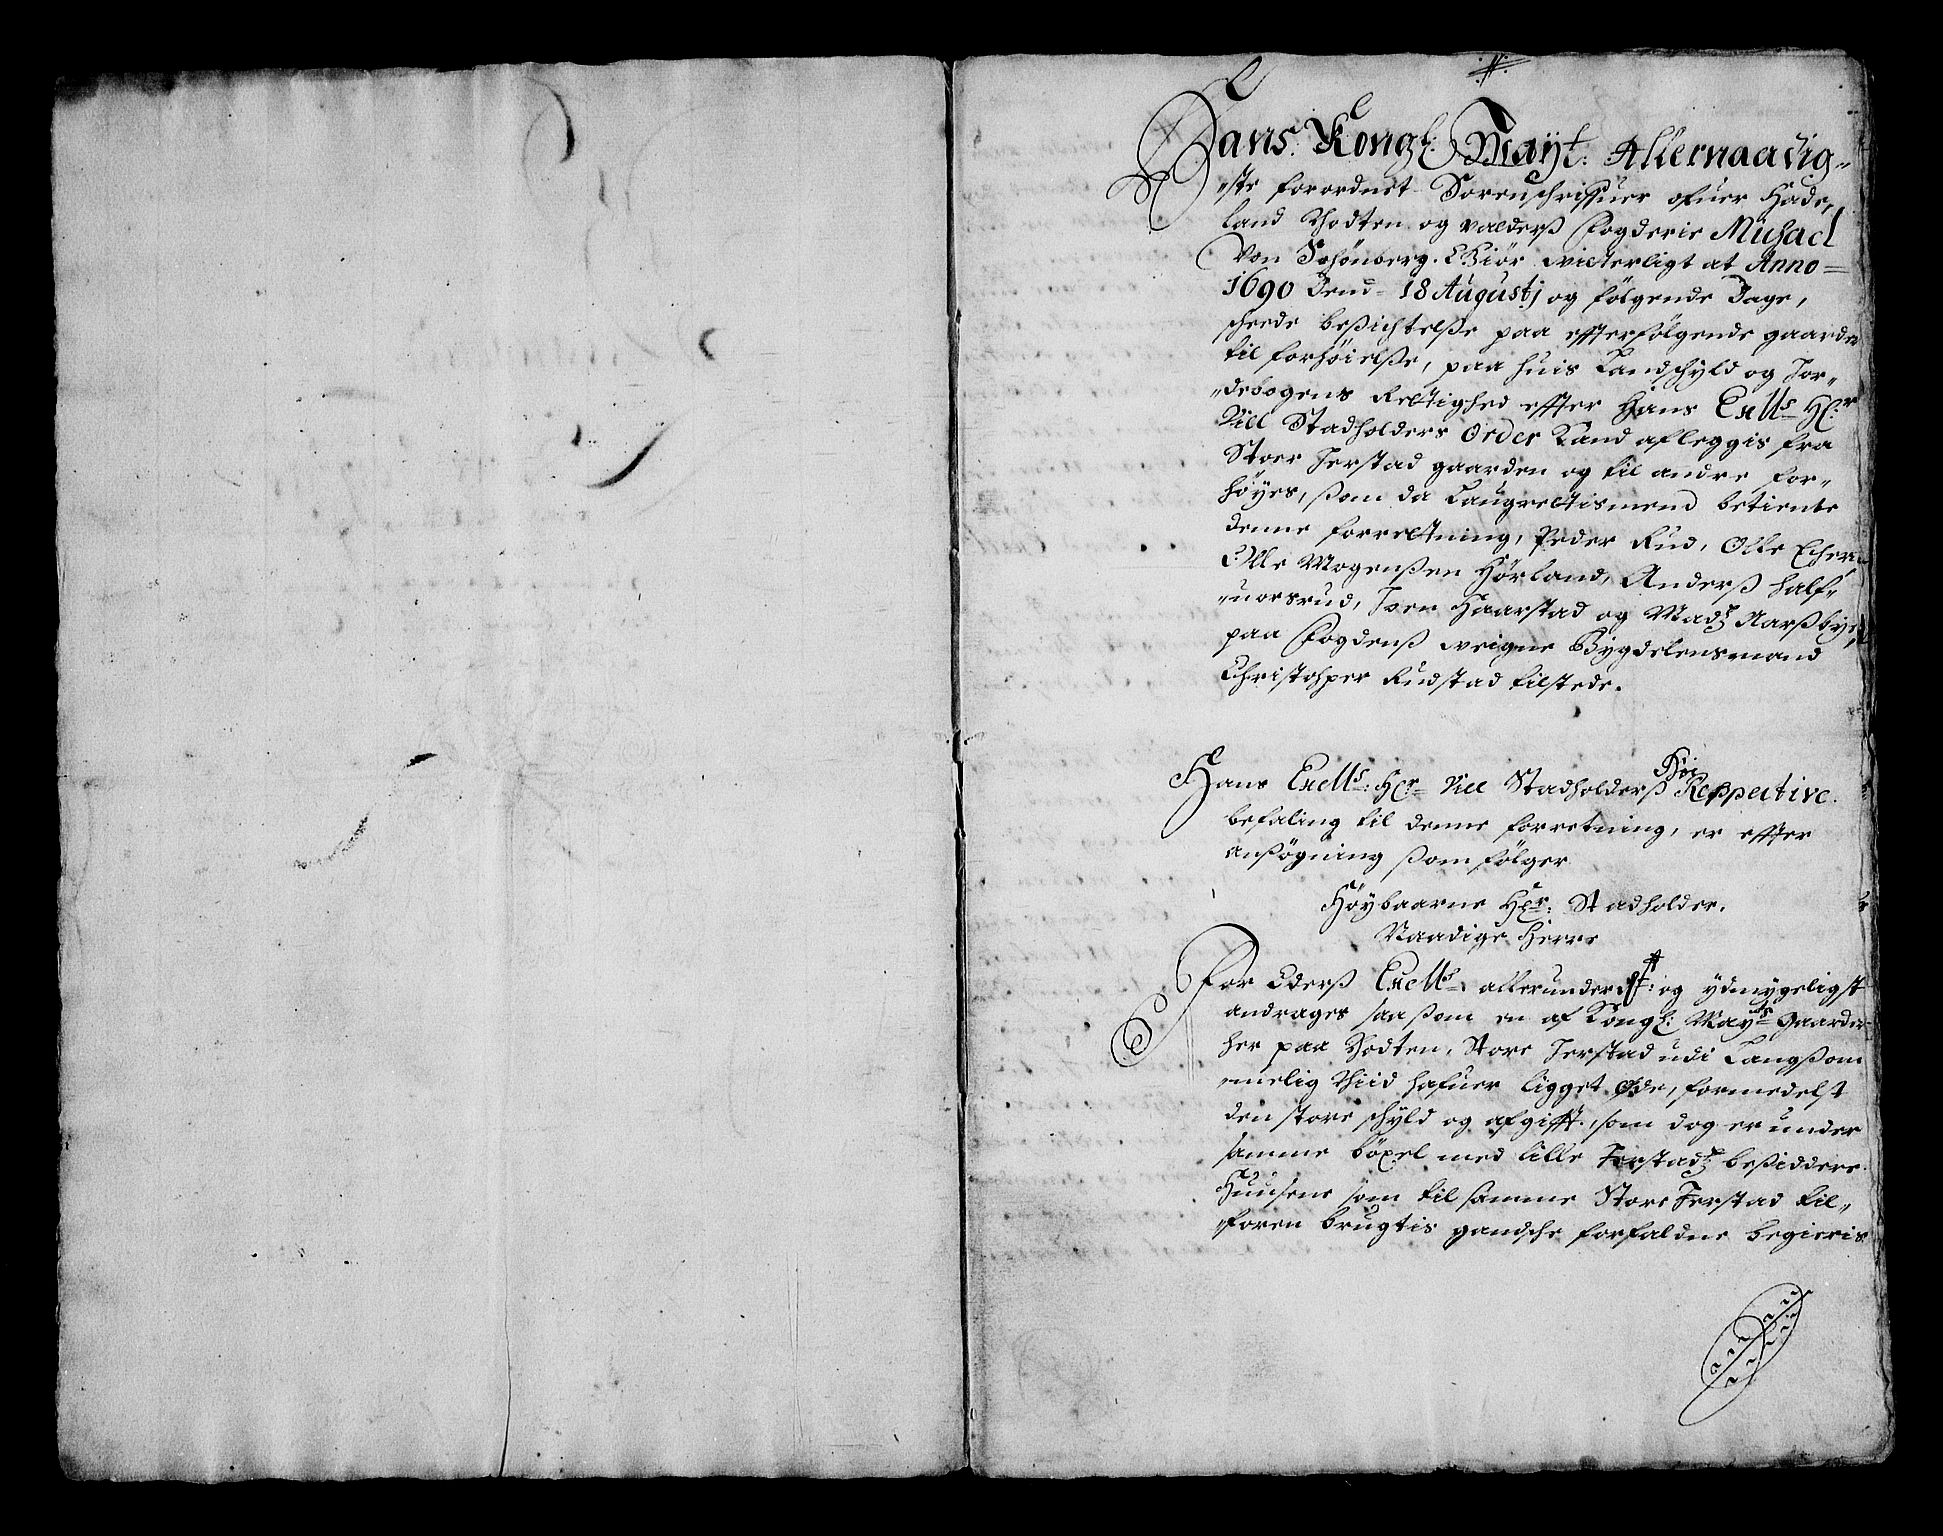 Hans. Kongl: Mayt: Allernaadig-
"ste forordnet Sorenschrifuer ofuer Hade,
land Thodten og Valderß Fogderie Michael
Von Schönberg. Giör witterligt at Anno=
1690 Dend= 18 Augustj og følgende Dage,
scheede beßichtelße paa effterfølgende gaarder
til forhøielße, paa huis Landschyld og Jor-
"debogens Rettighed effter Hans Exells Hr:
Vice Stadholders Order Kand afleggis fra
Stoer Jerstad gaarden og til andre for-
høyes, ßom da Laugrettismend betiente
denne forrettning, Peder Rud, Olle Echern
Olle Mogenßen Hørland, Anderß half-
"uorsrud, Iver Haarstad og Madz Narßbye,
paa Fogdenß weigne Bygdelensmand
Christopher Rudstad tilstede.
Høi
Hans Exells: Hr= Vice Stadholderß Reßpective.
befaling til denne forretning, er effter
anßøgning ßom følger
Høybaarne Hr: Stadholder.
Naadige Herre
For Eders Exells= allerunderdst: og ydmygeligst
andrages saa ßom en af Kongl: Mayts Gaarder
her paa Thodten, Store Jerstad udi Langßom
"melig Thiid hafuer ligget øde, formedelst
den store schyld og afgifft, som dog er under
samme böxel med lille Jerstadz beßiddere.
Huusene som til samme Store Jerstad til-
"foren brugtis gandsche forfaldne begieris